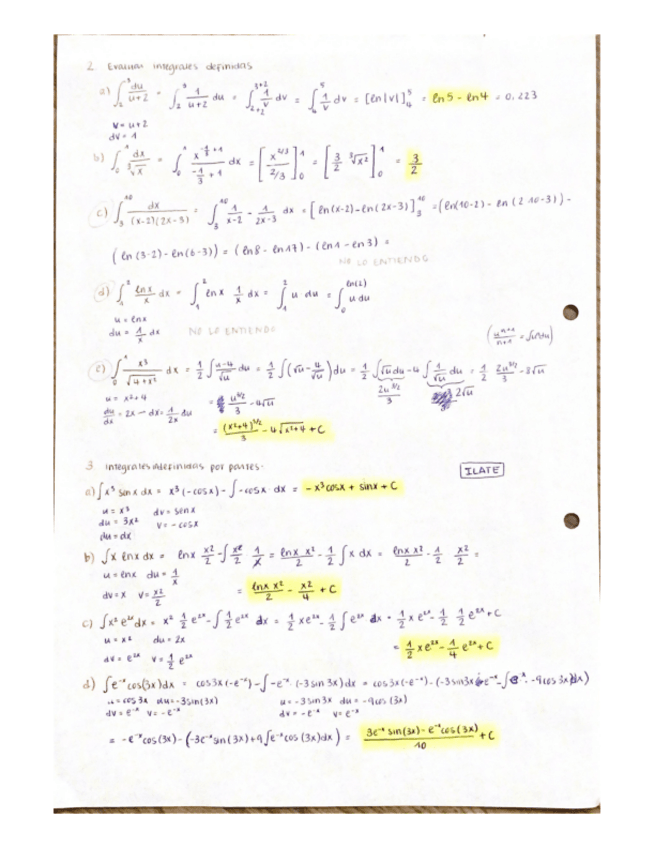 2. Evaluar integrales definidas
a) ∫₂³ du/(u+2) = ∫₂³ 1/(u+2) du = ∫₂₊₂³⁺² 1/v dv = ∫₄⁵ 1/v dv = [ln|v|]₄⁵ = ln5 - ln4 = 0,223
v = u+2
dv = 1
b) ∫₀¹ dx/³√x = ∫₀¹ x^(-1/3+1)/(-1/3+1) dx = [x^(2/3)/(2/3)]₀¹ = [3/2 ³√x²]₀¹ = 3/2
c) ∫₃¹⁰ dx/((x-2)(2x-3)) = ∫₃¹⁰ 1/(x-2) - 1/(2x-3) dx = [ln(x-2) - ln(2x-3)]₃¹⁰ = (ln(10-2) - ln(2·10-3)) -
(ln(3-2) - ln(6-3)) = (ln8 - ln17) - (ln1 - ln3) =
NO LO ENTIENDO
d) ∫₁² lnx/x dx = ∫₁² lnx 1/x dx = ∫₁² u du = ∫₀^ln(2) u du
u = lnx
du = 1/x dx NO LO ENTIENDO
(uⁿ⁺¹/n+1 = ∫uⁿdu)
e) ∫₀¹ x³/√(4+x²) dx = 1/2 ∫ (u-4)/√u du = 1/2 ∫(√u - 4/√u) du = 1/2 ∫√u du - 4 ∫ 1/√u du = 1/2 2u^(3/2)/3 - 8√u
2u^(3/2)/3 2√u
u = x²+4 = u^(3/2)/3 - 4√u
du/dx = 2x → dx = 1/2x du
= (x²+4)^(3/2)/3 - 4√(x²+4) + C
3. Integrales indefinidas por partes. ILATE
a) ∫x³ senx dx = x³(-cosx) - ∫-cosx dx = -x³cosx + sinx + C
u = x³ dv = senx
du = 3x² v = -cosx
du = dx
b) ∫x lnx dx = lnx x²/2 - ∫x²/2 1/x = lnx x²/2 - 1/2 ∫x dx = lnx x²/2 - 1/2 x²/2 =
u = lnx du = 1/x
dv = x v = x²/2 = lnx x²/2 - x²/4 + C
c) ∫x² e²ˣ dx = x² 1/2 e²ˣ - ∫1/2 e²ˣ dx = 1/2 xe²ˣ - 1/2 ∫e²ˣ dx = 1/2 xe²ˣ - 1/2 1/2 e²ˣ + C
u = x² du = 2x = 1/2 xe²ˣ - 1/4 e²ˣ + C
dv = e²ˣ v = 1/2 e²ˣ
d) ∫e⁻ˣcos(3x)dx = cos3x(-e⁻ˣ) - ∫-e⁻ˣ·(-3sin3x)dx = cos3x(-e⁻ˣ) - (-3sin3x e⁻ˣ - ∫e⁻ˣ·-9cos3x dx)
u = cos3x du = -3sin(3x) u = -3sin3x du = -9cos(3x)
dv = e⁻ˣ v = -e⁻ˣ dv = -e⁻ˣ v = e⁻ˣ
= -e⁻ˣcos(3x) - (-3e⁻ˣsin(3x) + 9∫e⁻ˣcos(3x)dx) = (3e⁻ˣsin(3x) - e⁻ˣcos(3x))/10 + C